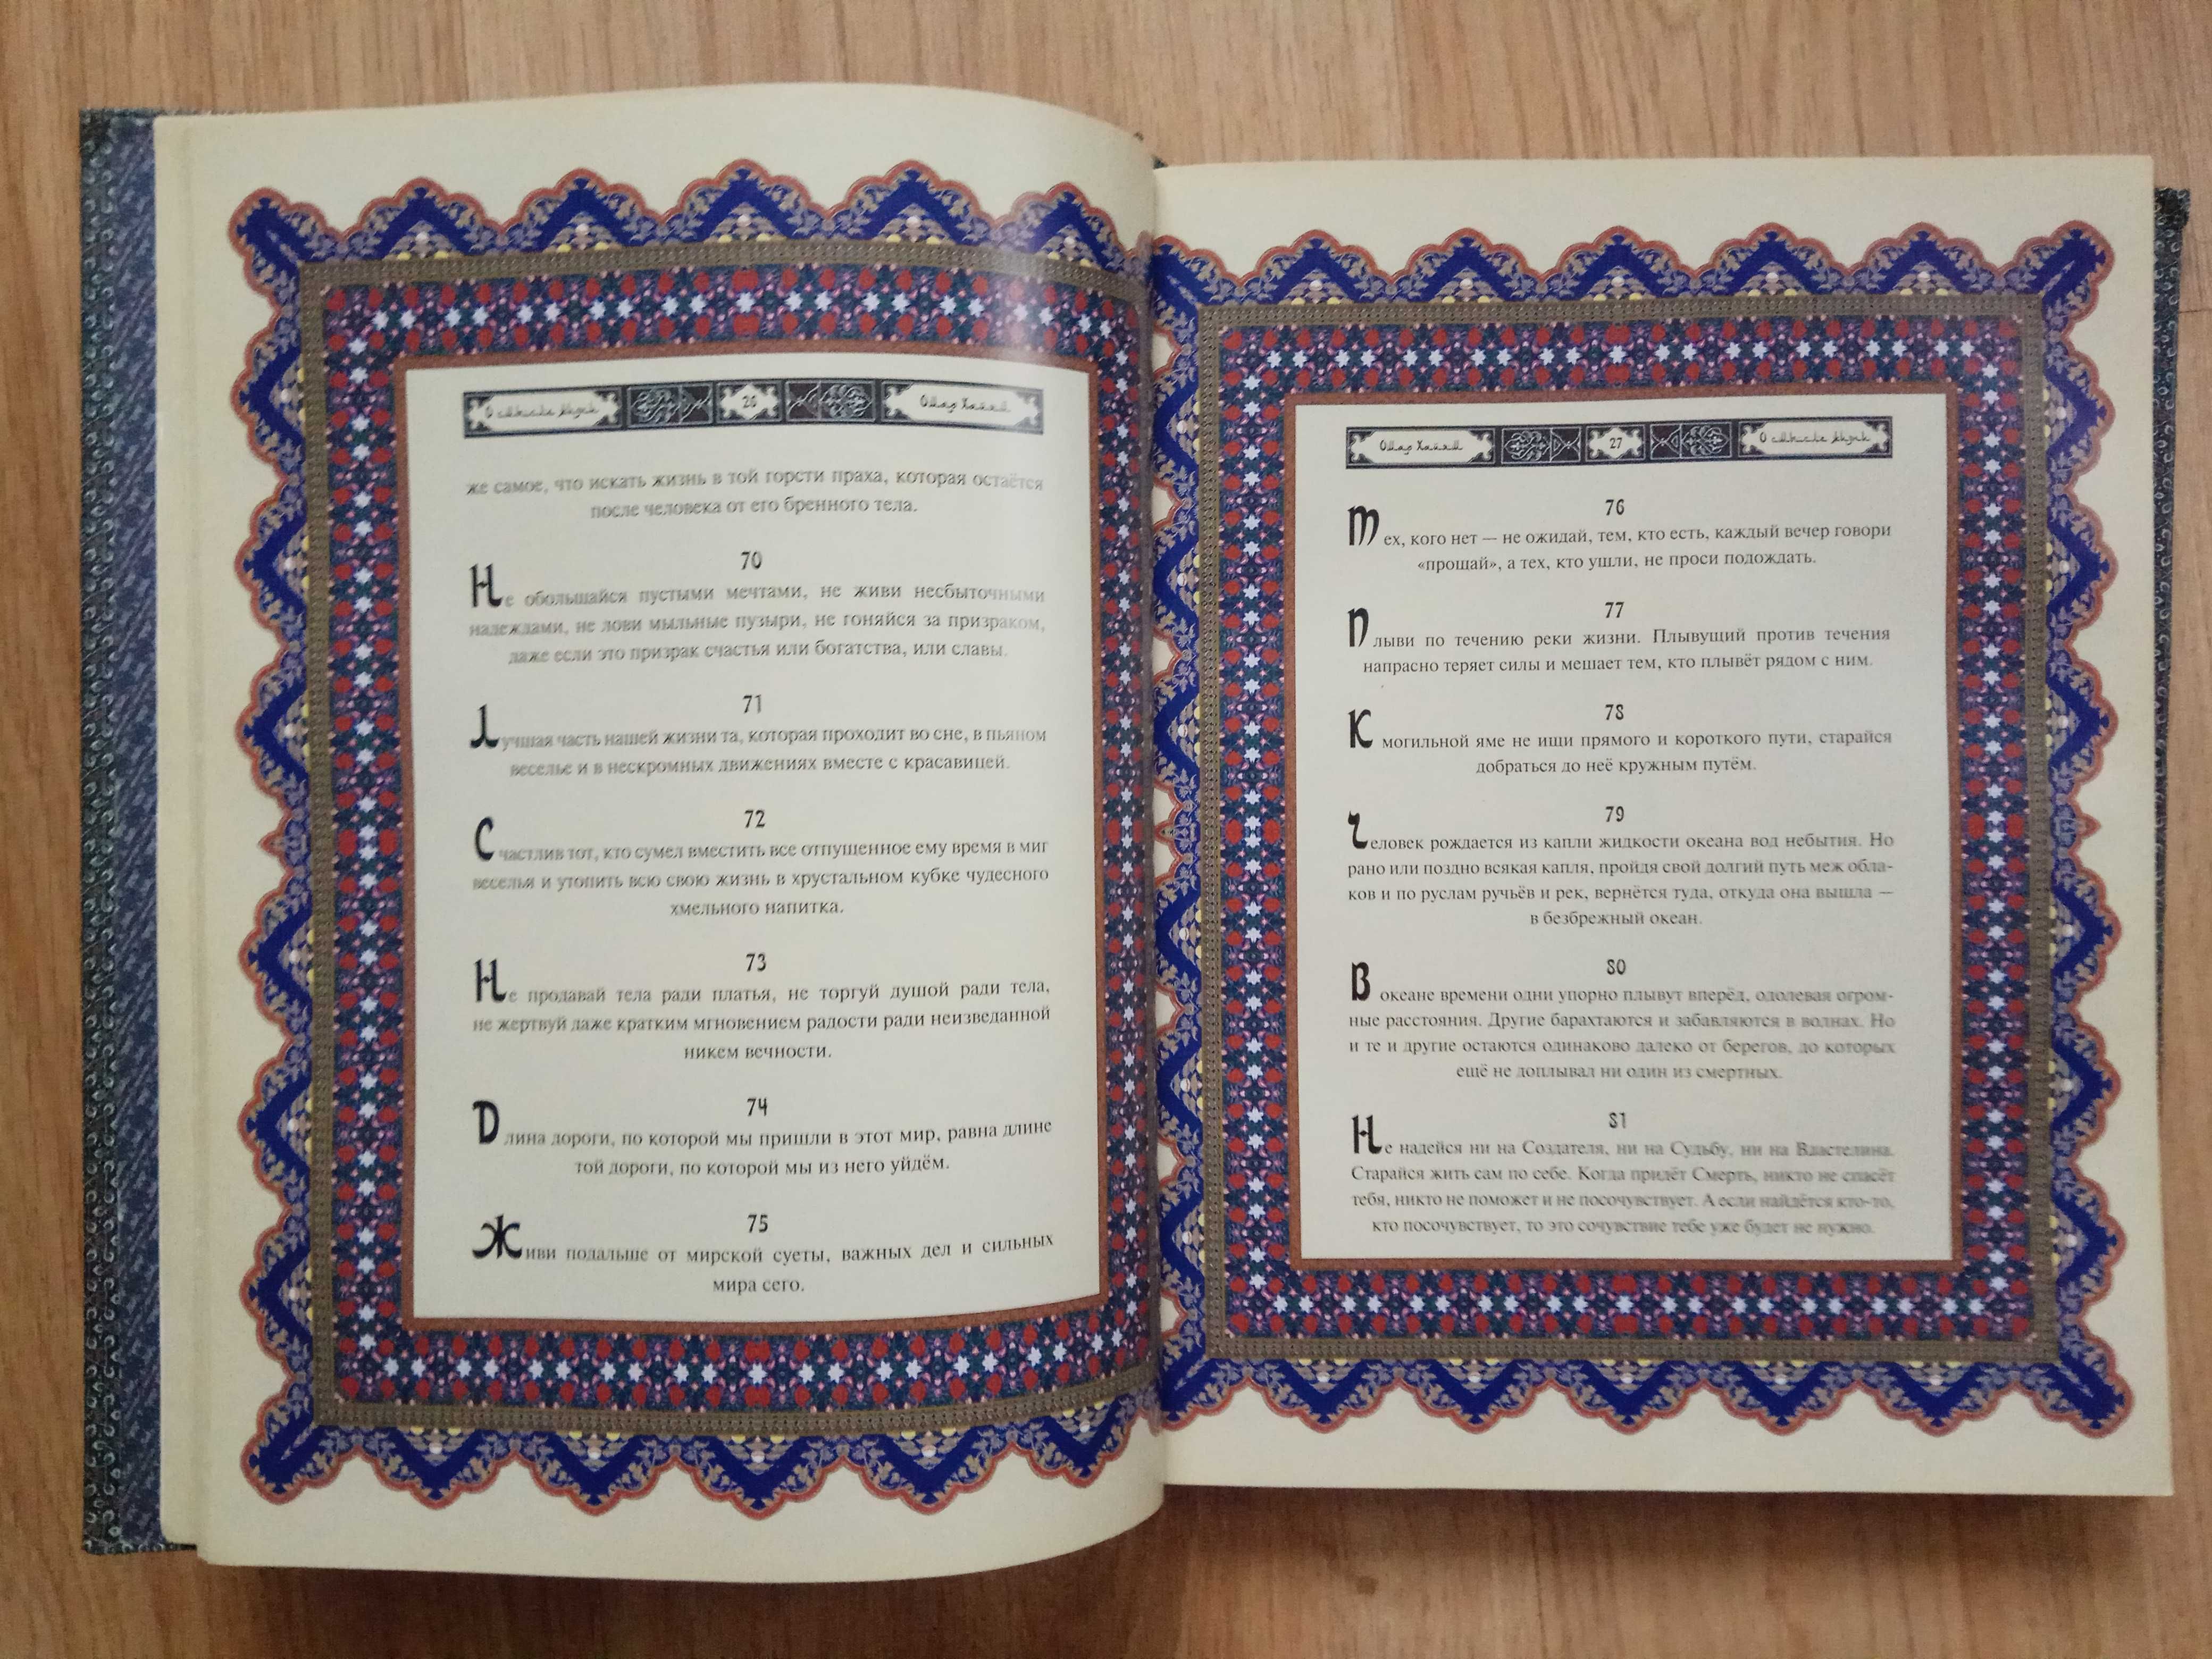 О смысле жизни 26 Омар Хайям
же самое, что искать жизнь в той горсти праха, которая остаётся
после человека от его бренного тела.
70
Не обольщайся пустыми мечтами, не живи несбыточными
надеждами, не лови мыльные пузыри, не гоняйся за призраком,
даже если это призрак счастья или богатства, или славы.
71
Лучшая часть нашей жизни та, которая проходит во сне, в пьяном
веселье и в нескромных движениях вместе с красавицей.
72
Счастлив тот, кто сумел вместить все отпущенное ему время в миг
веселья и утопить всю свою жизнь в хрустальном кубке чудесного
хмельного напитка.
73
Не продавай тела ради платья, не торгуй душой ради тела,
не жертвуй даже кратким мгновением радости ради неизведанной
никем вечности.
74
Длина дороги, по которой мы пришли в этот мир, равна длине
той дороги, по которой мы из него уйдём.
75
Живи подальше от мирской суеты, важных дел и сильных
мира сего.
Омар Хайям 27 О смысле жизни
76
Тех, кого нет — не ожидай, тем, кто есть, каждый вечер говори
«прощай», а тех, кто ушли, не проси подождать.
77
Плыви по течению реки жизни. Плывущий против течения
напрасно теряет силы и мешает тем, кто плывёт рядом с ним.
78
К могильной яме не ищи прямого и короткого пути, старайся
добраться до неё кружным путём.
79
Человек рождается из капли жидкости океана вод небытия. Но
рано или поздно всякая капля, пройдя свой долгий путь меж обла-
ков и по руслам ручьёв и рек, вернётся туда, откуда она вышла —
в безбрежный океан.
80
В океане времени одни упорно плывут вперёд, одолевая огром-
ные расстояния. Другие барахтаются и забавляются в волнах. Но
и те и другие остаются одинаково далеко от берегов, до которых
ещё не доплывал ни один из смертных.
81
Не надейся ни на Создателя, ни на Судьбу, ни на Властелина.
Старайся жить сам по себе. Когда придёт Смерть, никто не спасёт
тебя, никто не поможет и не посочувствует. А если найдётся кто-то,
кто посочувствует, то это сочувствие тебе уже будет не нужно.